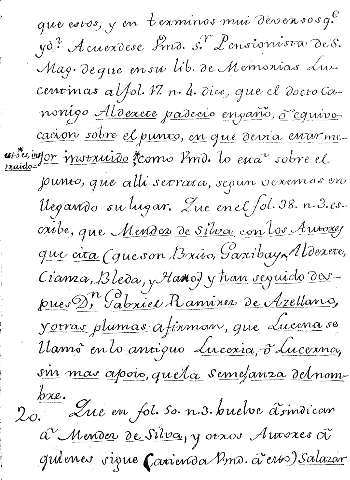 que estos, y en terminos mui deversos q.e
yo? Acuerdese Vmd. S.r Pensionista de S.
Mag. de que en su lib. de Memorias Lu-
centinas al fol. 17. n. 4. dice, que el docto Ca-
nonigo Alderete padecio engaño, ô equivo-
cacion sobre el punto, en que devia estar me-
jor instruido como Vmd. lo esta sobre el
punto, que alli se trata, segun veremos en
llegando su lugar. Que en el fol. 38. n. 3. es-
cribe, que Mendez de Silva con los Autores
que cita (que son Brito, Garibay, Alderete,
Cianza, Bleda, y Haro) y han seguido des-
pues D.n Gabriel Ramirez de Arellano,
y otras plumas afirman, que Lucena se
llamó en lo antiguo Luceria, ô Lucerna,
sin mas apoio, que la semejanza del nom-
bre.
20. Que en fol. 50. n. 3. buelve â sindicar
â Mendez de Silva, y otros Autores â
quienes sigue (atienda Vmd. â esto) Salazar